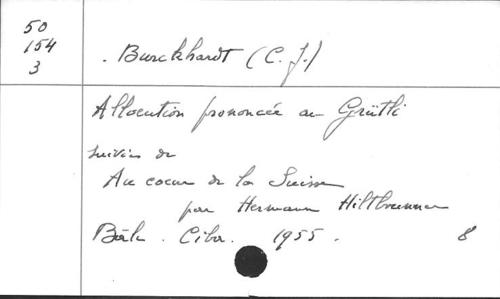 50
154
3
. Burckhardt (C. J.)
Allocution prononcée au Grütli
suivies de
Au coeur de la Suisse
par Hermann Hiltbrunner
Bâle. Ciba. 1955. 8